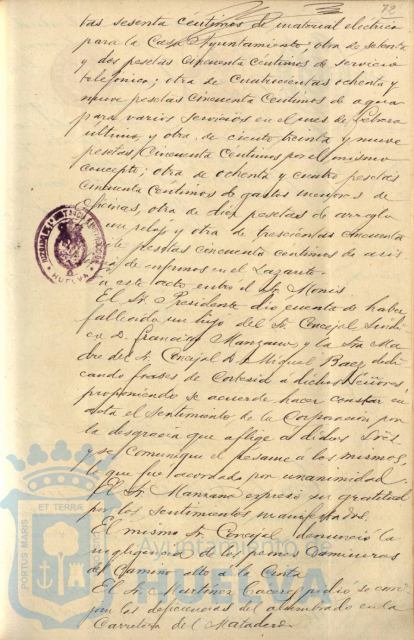 72
tas sesenta centimos de material eléctrico
para la Casa Ayuntamiento; otra de setenta
y dos pesetas cincuenta centimos de servicio
telefonico; otra de cuatrocientas ochenta y
nueve pesetas cincuenta centimos de agua
para varios servicios en el mes de Febrero
ultimo, y otra de ciento treinta y nueve
pesetas cincuenta centimos por el mismo
concepto; otra de ochenta y cuatro pesetas
cincuenta centimos de gastos menores de
oficinas, otra de diez pesetas de arreglo
un reloj y otra de trescientas cincuenta
te pesetas cincuenta centimos de
de enfermos en el Lazareto.
a este acto entro el Sr. Monis
El Sr. Presidente dio cuenta de haber
fallecido un hijo del Sr. Concejal Sindi
co D. Francisco Manzano y la Sra. Ma
dre del Sr. Concejal D. Miguel Baez dedi
cando frases de cortesia a dichos señores
proponiendo se acuerde hacer constar en
acta el sentimiento de la Corporación por
la desgracia que aflige a dichos Sres
y se comunique el pesame a los mismos,
lo que fue acordado por unanimidad.
El Sr. Manzano expresó su gratitud
por los sentimientos manifestados.
El mismo Sr. Concejal denunció la
negligencia de los peones Camineros
del Camino alto a la Cinta
El Sr. Martinez Caceres pidió se corri
jan las deficiencias del alumbrado en la
Carretera del Matadero
HUELVA
PORTUS MARIS
ET TERRA
Ayuntamiento
HUELVA